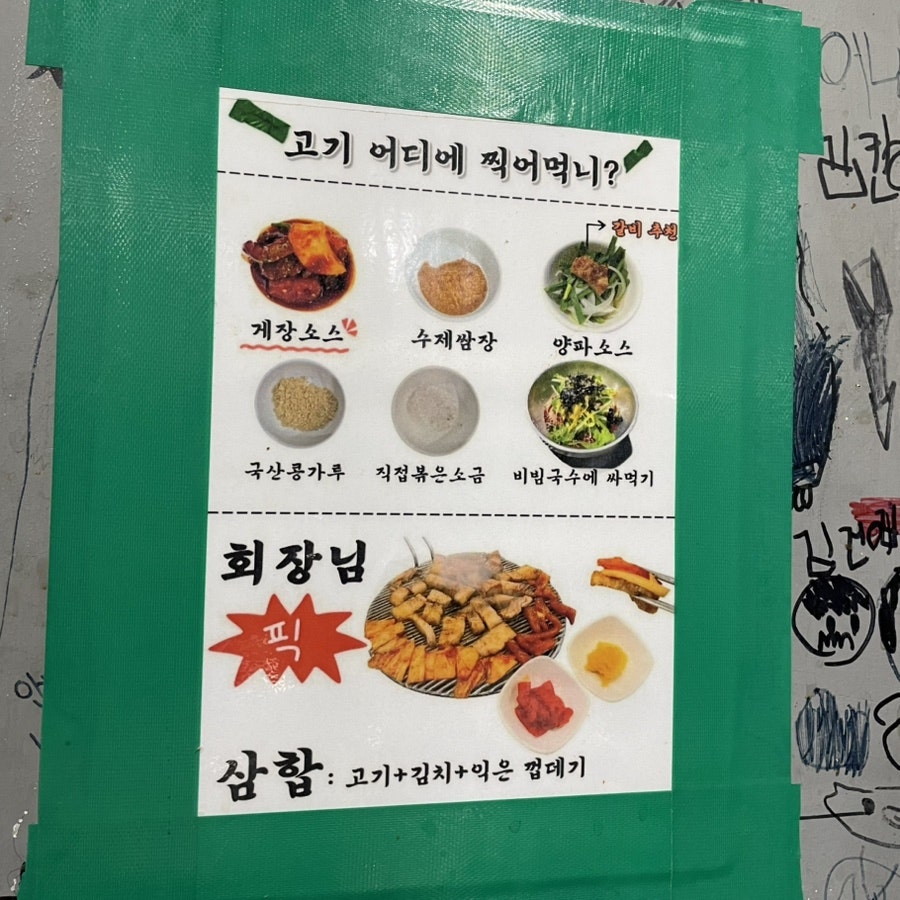 고기 어디에 찍어먹니?
갈비 추천
게장소스
수제쌈장
양파소스
국산콩가루
직접볶은소금
비빔국수에 싸먹기
회장님
픽
삼합: 고기+김치+익은 껍데기